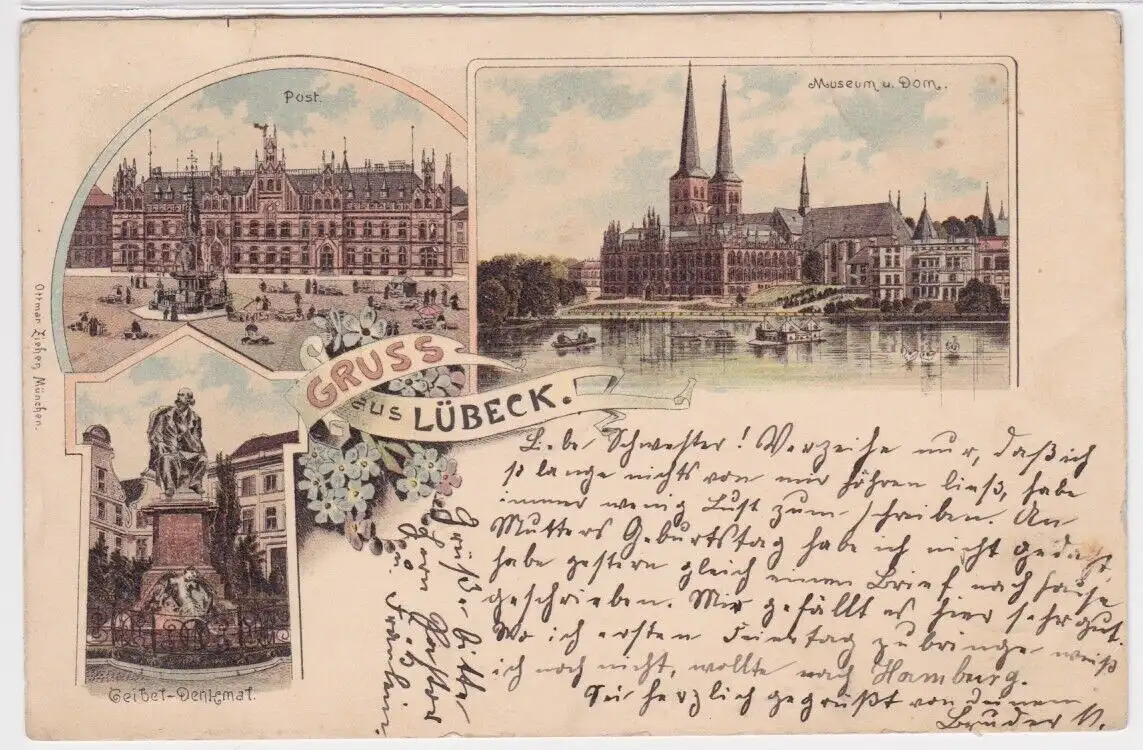 Post.
Museum u. Dom.
GRUSS
aus LÜBECK.
Geibel-Denkmal.
Ottmar Zieher, München.
Liebe Schwester! Verzeihe nur, daß ich
so lange nichts von mir höhren ließ, habe
immer wenig Lust zum schreiben. An
Mutters Geburtstag hab ich nicht gedacht,
habe gestern gleich einen Brief nach hause
geschrieben. Mir gefällt es hier sehr gut.
Wo ich ersten Feiertag zubringe weiß
ich noch nicht, wollte nach Hamburg.
Sei herzlich gegrüßt von deinem
Bruder N.
Grüße bitte
Fräulein